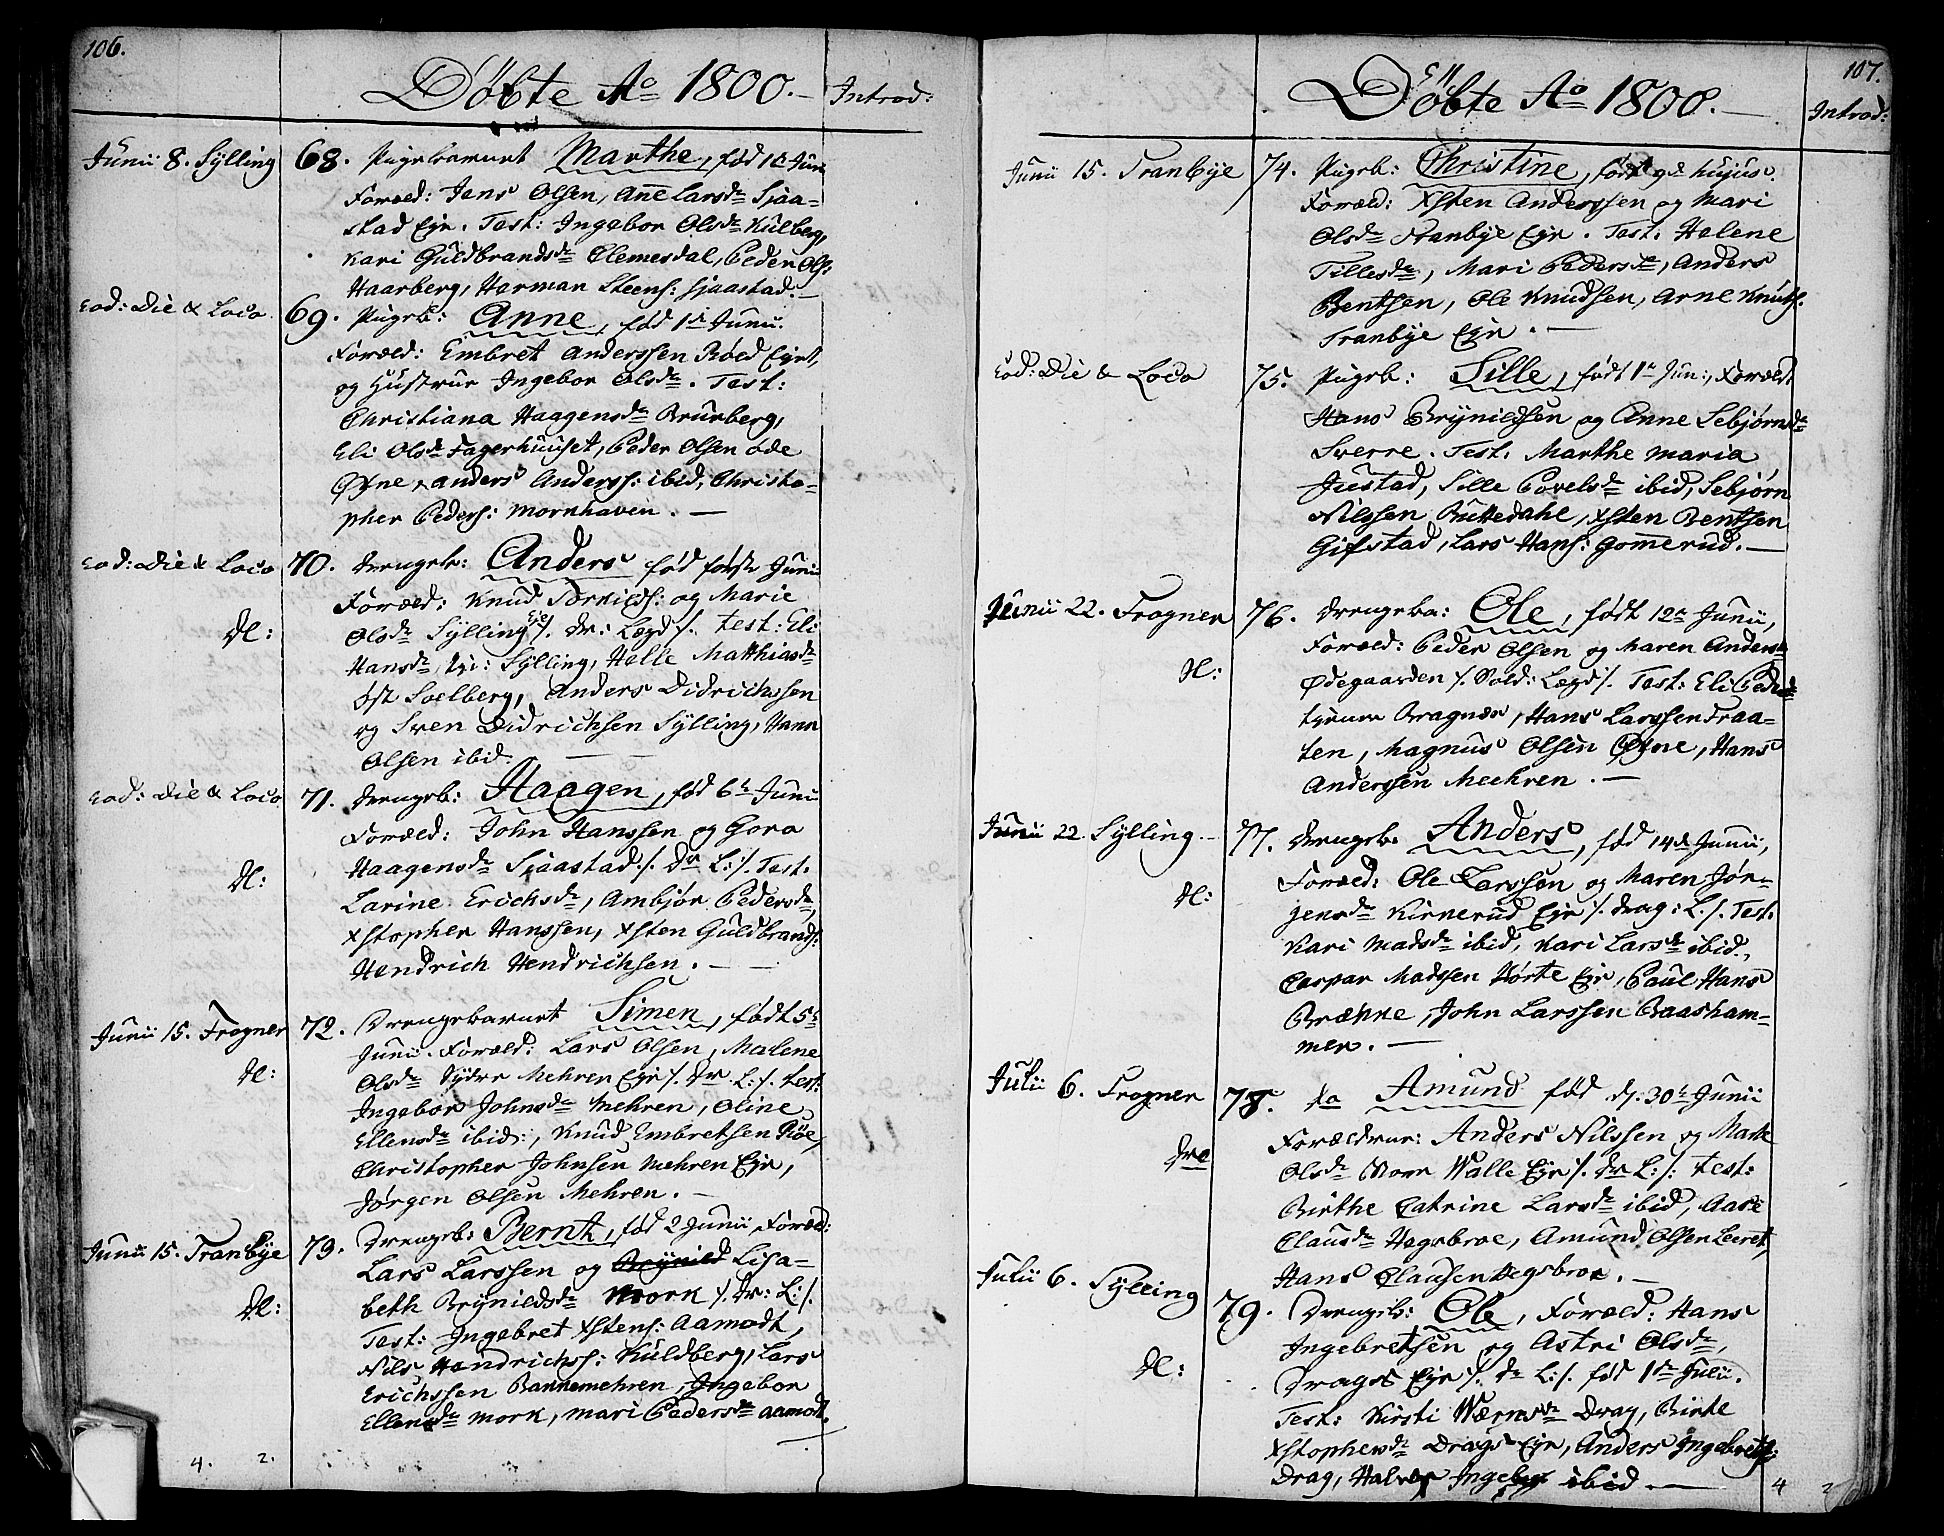 106.
Döbte Ao 1800.
Introd:
Junii 8. Sylling 68. Pigebarnet Marthe, fød 1ste Juni
Foræld: Jens Olsen, Anne Larsdr Sjaa-
stad Eje. Test: Ingebor Olsdr Kulberg,
Kari Guldbrandsdr Clemesdal, Peder Ols:
Haarberg, Harman Steens: Sjaastad.
Eod: Die & Loco. 69. Pigeb: Anne, fød 1ste Junii.
Foræld: Embret Anderssen Röed Ejet,
og Hustrue Ingebor Olsdr. Test:
Christiana Haagensdr Brurberg,
Eli Olsdr Fagerhuuset, Peder Olsen öde
Øfne, Anders Anderss: ibid, Christo-
pher Peders: Mornhaven.
Eod: Die & Loco 70. Drengeb: Anders fød første Junii
Foræld: Knud Torkilds: og Marie
Dl: Olsdr Sylling Eje /. Dr: Lægd /. Test: Eli
Hansdr, Sylling, Helle Matthiasdr
Øst Soelberg, Anders Didrichssen
og Sven Didrichsen Sylling, Hans
Olsen ibid.
Eod: Die & Loco 71. Drengeb: Haagen, fød 6te Junii
Foræld: John Hanssen og Goro
Dl: Haagensdr Sjaastad /. Dr L: /. Test:
Larine Erichsdr, Ambjør Pedersdr,
Xstopher Hanssen, Xsten Guldbrands:
Hendrich Hendrichsen.
Junii 15. Frogner 72. Drengebarnet Simen, født 5te
Junii. Foræld: Lars Olsen, Malene
Dl: Olsdr Sydre Mehren Eje /. Dr L: /. test:
Ingebor Johnsdr Mehren, Oline
Ellensdr ibid:, Knud Embretsen Röe,
Christopher Johnsen Mehren Eje,
Jörgen Olsen Mehren.
Junii 15. Tranbye 73. Drengeb: Bernt, fød 2 Junii, Foræld:
Lars Larssen og Brynild Lisa-
Dl: beth Brynildsdr Mork /. Dr: L: /.
Test: Ingebret Xstens: Aamodt,
Nils Hendrichss: Kuldberg, Lars
Erichssen Bannemehren, Ingebor
Ellensdr Mork, Mari Pedersdr Aamodt.
4. 2.
107.
Döbte Ao 1800.
Introd:
Junii 15. Tranbye 74. Pigeb: Christine, født 9de hujus.
Foræld: Xsten Anderssen og Mari
Olsdr Tranbye Eje. Test: Helene
Tillesdr, Mari Pedersdr, Anders
Bentsen, Ole Knudsen, Arne Knuts:
Tranbye Eje.
Eod: Die & Loco 75. Pigeb: Sille, født 1ste Jun:, Foræld:
Hans Brynildssen og Anne Sebjørnsdr
Sverre. Test: Marthe Maria
Justad, Sille Povelsdr ibid, Sebjørn
Nilssen Buttedahl, Xsten Bentsen
Gifstad, Lars Hans: Gommerud.
Junii 22. Frogner 76. Drengeba: Ole, født 12te Junii,
Foræld: Peder Olsen og Maren Andersdr
Dl: Ødegaarden /. Sold: Lægd /. Test: Eli Pedersdr
Bragnæs, Hans Larssen Fraa-
ten, Magnus Olsen Øfne, Hans
Anderssen Meehren.
Junii 22 Sylling. 77. Drengeb. Anders, fød 14de Junii,
Foræld: Ole Larssen og Maren Jør-
Dl: gensdr Kirnerud Eje /. Drag: L: /. Test:
Kari Madsdr ibid, Kari Larsdr ibid,
Caspar Madssen Hörte Eje, Paul Hans
Brække, John Larssen Baasham-
mer.
Julii 6. Frogner 78. do Amund fød d: 30te Junii
Forældrer: Anders Nilssen og Marte
Dre Olsdr Nore Walle Eje /. Dr L: /: Test:
Birthe Catrine Larsdr ibid, Aase
Clausdr Hegsbroe, Amund Olsen Leeret,
Hans Clausen Hegsbroe.
Julii 6. Sylling 79. Drengeb: Ole, Foræld: Hans
Ingebretsen og Astri Olsdr,
Dl: Drags Eje /. Dr L: /. fød 1ste Julii.
Test: Kirsti Wærnsdr Drag, Birte
Xstophersdr Drags Eje, Anders Ingebrets:
Drag, Halvor ibid
4 2